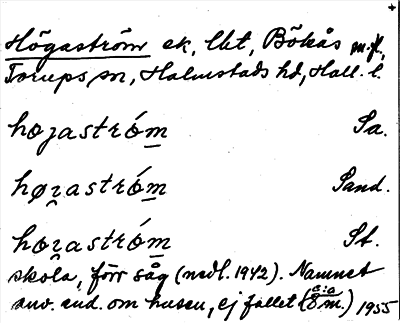 Högaström ek, lht, Bökås m.fl,
Torups sn, Halmstads hd, Hall. l.
hoʒaström Sa.
høʒaström Sand.
hoʒaström St.
skola, förr såg (nedl. 1942). Namnet
anv. end. om husen, ej fallet (8 m.) 1955